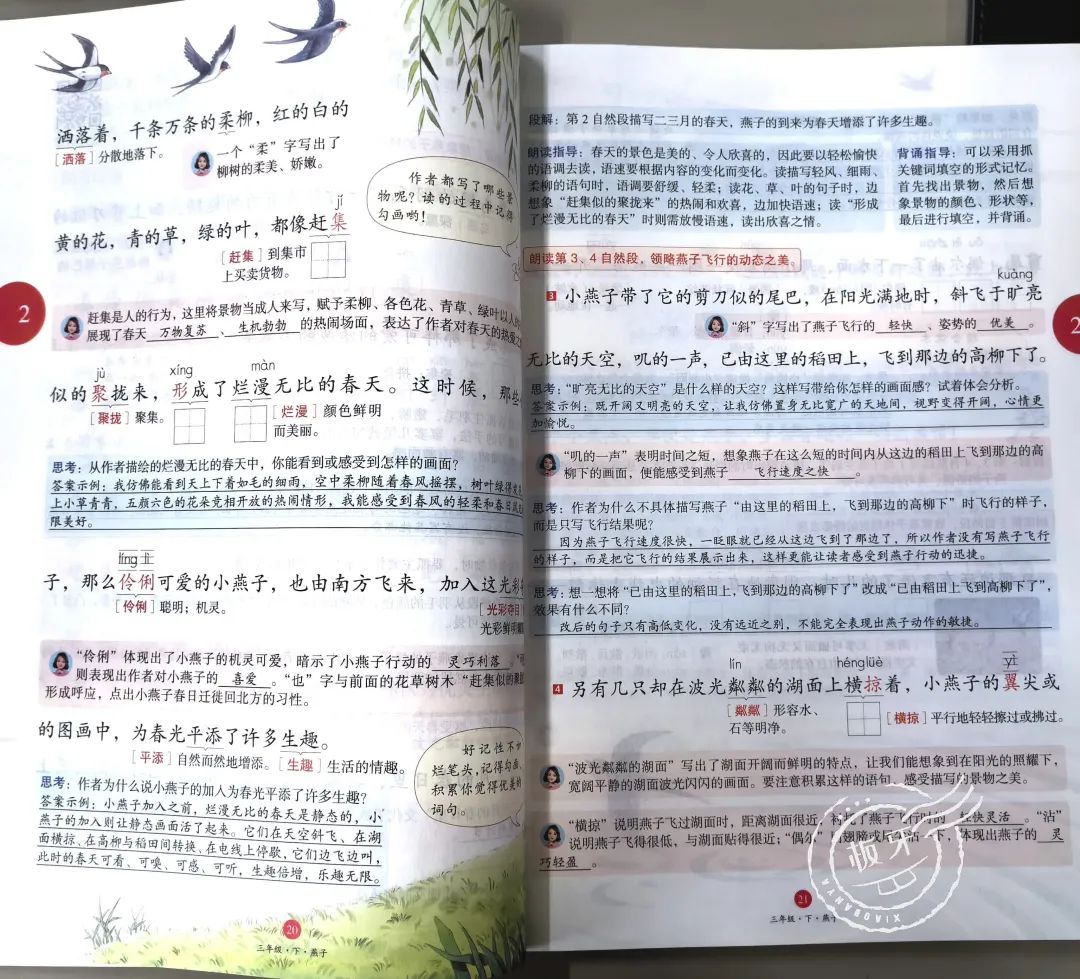 洒落着，千条万条的柔柳，红的白的
[洒落] 分散地落下。
一个“柔”字写出了
柳树的柔美、娇嫩。
作者都写了哪些景
物呢？读的过程中记得
勾画哟！
jí
黄的花，青的草，绿的叶，都像赶集
[赶集] 到集市
上买卖货物。
2
赶集是人的行为，这里将景物当成人来写，赋予柔柳、各色花、青草、绿叶以人的
展现了春天 万物复苏 、 生机勃勃 的热闹场面，表达了作者对春天的热爱之
jù xíng màn
似的聚拢来，形成了烂漫无比的春天。这时候，那些
[聚拢] 聚集。
[烂漫] 颜色鲜明
而美丽。
思考：从作者描绘的烂漫无比的春天中，你能看到或感受到怎样的画面？
答案示例：我仿佛能看到天上下着如毛的细雨，空中柔柳随着春风摇摆，树叶绿得发
上小草青青，五颜六色的花朵竞相开放的热闹情形，我能感受到春风的轻柔和春日风光
限美好。
líng lì
子，那么伶俐可爱的小燕子，也由南方飞来，加入这光彩
[伶俐] 聪明；机灵。
[光彩夺目]
光彩鲜明耀
“伶俐”体现出了小燕子的机灵可爱，暗示了小燕子行动的 灵巧利落 。“可
则表现出作者对小燕子的 喜爱 。“也”字与前面的花草树木“赶集似的聚拢
形成呼应，点出小燕子春日迁徙回北方的习性。
的图画中，为春光平添了许多生趣。
[平添] 自然而然地增添。 [生趣] 生活的情趣。
好记性不如
烂笔头，记得勾画、
积累你觉得优美的
词句。
思考：作者为什么说小燕子的加入为春光平添了许多生趣？
答案示例：小燕子加入之前，烂漫无比的春天是静态的，小
燕子的加入则让静态画面活了起来。它们在天空斜飞、在湖
面横掠、在高柳与稻田间转换、在电线上停歇，它们边飞边叫，
此时的春天可看、可嗅、可感、可听，生趣倍增，乐趣无限。
20
三年级·下·燕子
段解：第2自然段描写二三月的春天，燕子的到来为春天增添了许多生趣。
朗读指导：春天的景色是美的、令人欣喜的，因此要以轻松愉快
的语调去读，语速要根据内容的变化而变化。读描写轻风、细雨、
柔柳的语句时，语调要舒缓、轻柔；读花、草、叶的句子时，边
想象“赶集似的聚拢来”的热闹和欢喜，边加快语速；读“形成
了烂漫无比的春天”时则需放慢语速，读出欣喜之情。
背诵指导：可以采用抓
关键词填空的形式记忆。
首先找出景物，然后想
象景物的颜色、形状等，
最后进行填空，并背诵。
朗读第3、4自然段，领略燕子飞行的动态之美。
kuàng
3 小燕子带了它的剪刀似的尾巴，在阳光满地时，斜飞于旷亮
“斜”字写出了燕子飞行的 轻快 、姿势的 优美 。
2
无比的天空，叽的一声，已由这里的稻田上，飞到那边的高柳下了。
思考：“旷亮无比的天空”是什么样的天空？这样写带给你怎样的画面感？试着体会分析。
答案示例：既开阔又明亮的天空，让我仿佛置身无比宽广的天地间，视野变得开阔，心情更
加愉悦。
“叽的一声”表明时间之短，想象燕子在这么短的时间内从这边的稻田上飞到那边的高
柳下的画面，便能感受到燕子 飞行速度之快 。
思考：作者为什么不具体描写燕子“由这里的稻田上，飞到那边的高柳下”时飞行的样子，
而是只写飞行结果呢？
因为燕子飞行速度很快，一眨眼就已经从这边飞到了那边了，所以作者没有写燕子飞行
的样子，而是把它飞行的结果展示出来，这样更能让读者感受到燕子行动的迅捷。
思考：想一想将“已由这里的稻田上，飞到那边的高柳下了”改成“已由稻田上飞到高柳下了”，
效果有什么不同？
改后的句子只有高低变化，没有远近之别，不能完全表现出燕子动作的敏捷。
lín héng lüè yì
4 另有几只却在波光粼粼的湖面上横掠着，小燕子的翼尖或
[粼粼] 形容水、
石等明净。
[横掠] 平行地轻轻擦过或拂过。
“波光粼粼的湖面”写出了湖面开阔而鲜明的特点，让我们能想象到在阳光的照耀下，
宽阔平静的湖面波光闪闪的画面。要注意积累这样的语句，感受描写的景物之美。
“横掠”说明燕子飞过湖面时，距离湖面很近，衬托了燕子飞行时的 轻快灵活 。“沾”
说明燕子飞得很低，与湖面贴得很近；“偶尔” 翅膀或尾 沾一下，体现出燕子的 灵
巧轻盈 。
21
三年级·下·燕子
XIAOBANYA